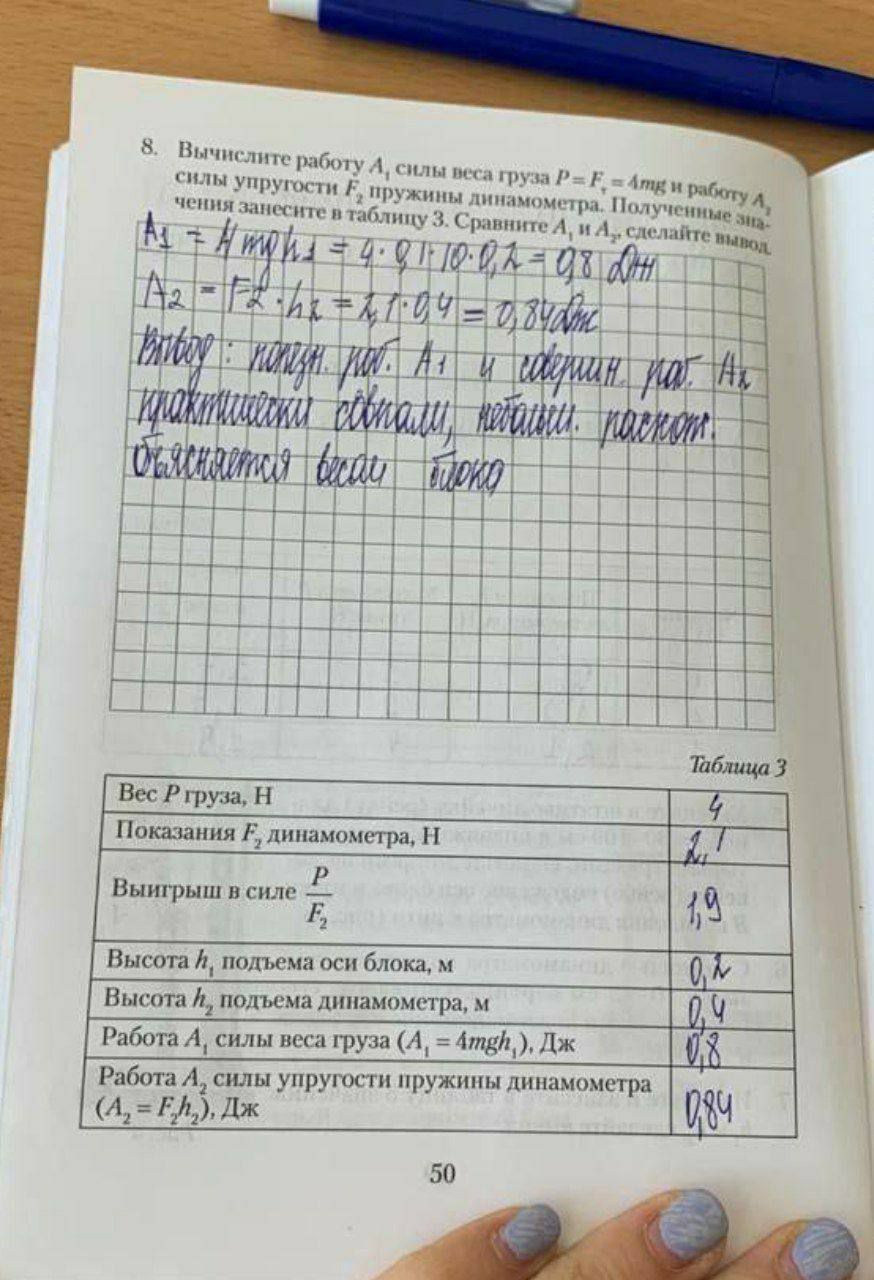 8. Вычислите работу A₁ силы веса груза P = Fт = 4mg и работу A₂
силы упругости F₂ пружины динамометра. Полученные зна-
чения занесите в таблицу 3. Сравните A₁ и A₂, сделайте вывод.
A1 = 4mgh1 = 4·0,1·10·0,2 = 0,8 Дж
A2 = F2·h2 = 2,1·0,4 = 0,84Дж
Вывод: полезн. раб. A1 и соверш. раб. A2
практически совпали, небольш. расхож.
объясняется весом блока
Таблица 3
Вес P груза, Н 4
Показания F₂ динамометра, Н 2,1
Выигрыш в силе P/F₂ 1,9
Высота h₁ подъема оси блока, м 0,2
Высота h₂ подъема динамометра, м 0,4
Работа A₁ силы веса груза (A₁ = 4mgh₁), Дж 0,8
Работа A₂ силы упругости пружины динамометра
(A₂ = F₂h₂), Дж 0,84
50